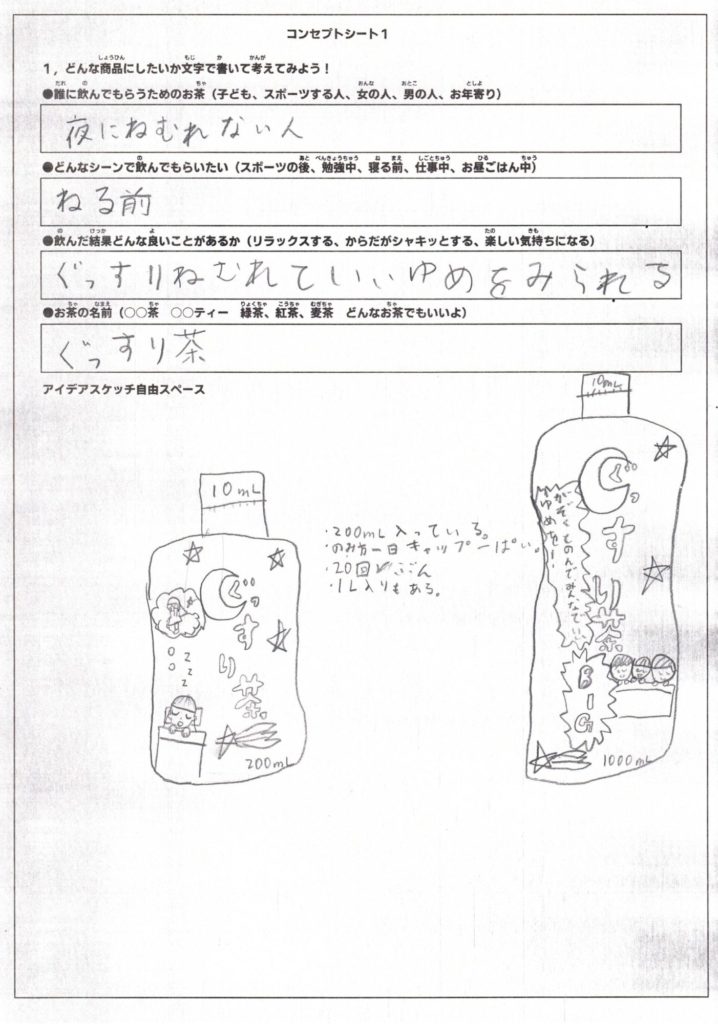 コンセプトシート1
1，どんな商品にしたいか文字で書いて考えてみよう！
●誰に飲んでもらうためのお茶（子ども、スポーツする人、女の人、男の人、お年寄り）
夜にねむれない人
●どんなシーンで飲んでもらいたい（スポーツの後、勉強中、寝る前、仕事中、お昼ごはん中）
ねる前
●飲んだ結果どんな良いことがあるか（リラックスする、からだがシャキッとする、楽しい気持ちになる）
ぐっすりねむれていいゆめをみられる
●お茶の名前（○○茶　○○ティー　緑茶、紅茶、麦茶　どんなお茶でもいいよ）
ぐっすり茶
アイデアスケッチ自由スペース
10mL
ぐっすり茶
zzz
200mL
・200mL入っている。
・のみ方一日キャップ一ぱい。
・20回ぶん
・1L入りもある。
10mL
ぐっすり茶
かぞくものんでみんなでいい
ゆめを！
BIG
1000mL